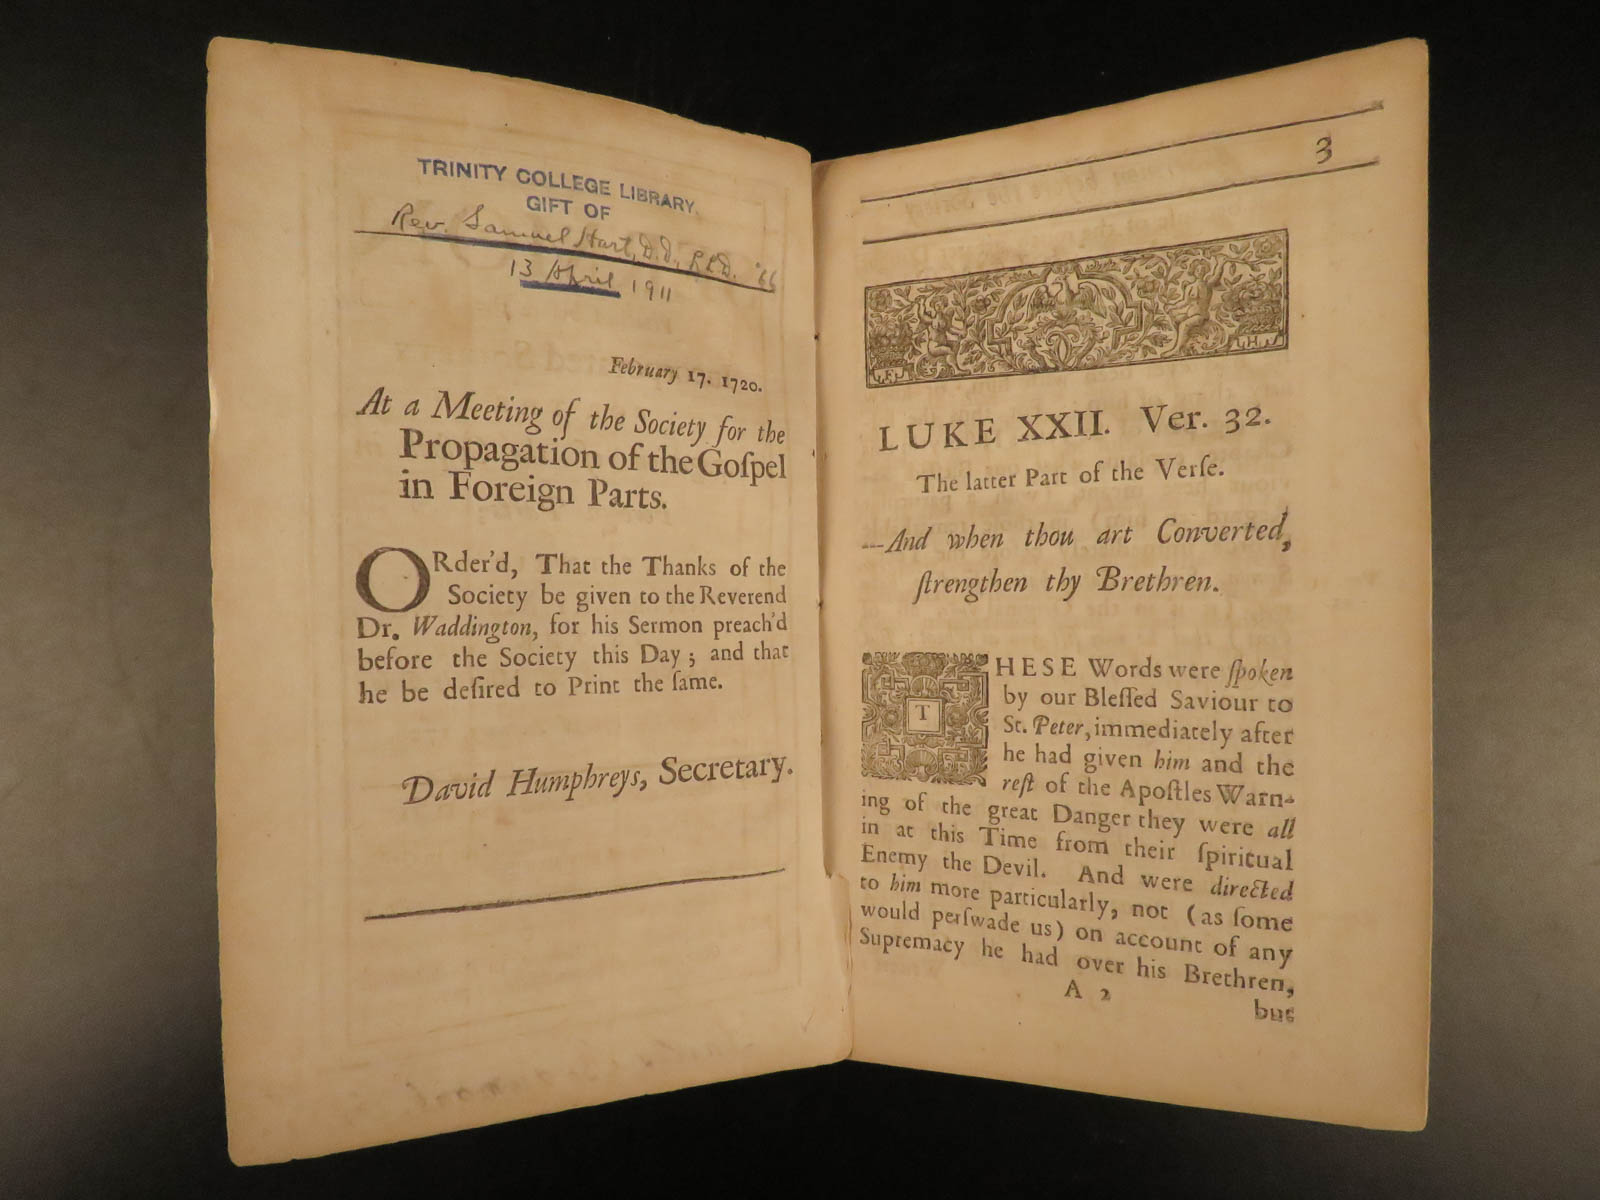 TRINITY COLLEGE LIBRARY
GIFT OF
Rev. Samuel Hart, D.D., LL.D. '66
13 April 1911
February 17. 1720.
At a Meeting of the Society for the
Propagation of the Goſpel
in Foreign Parts.
ORder'd, That the Thanks of the
Society be given to the Reverend
Dr. Waddington, for his Sermon preach'd
before the Society this Day; and that
he be deſired to Print the ſame.
David Humphreys, Secretary.
3
F H
LUKE XXII. Ver. 32.
The latter Part of the Verſe.
—And when thou art Converted,
ſtrengthen thy Brethren.
THESE Words were ſpoken
by our Bleſſed Saviour to
St. Peter, immediately after
he had given him and the
reſt of the Apoſtles Warn-
ing of the great Danger they were all
in at this Time from their ſpiritual
Enemy the Devil. And were directed
to him more particularly, not (as ſome
would perſwade us) on account of any
Supremacy he had over his Brethren,
A 2
but